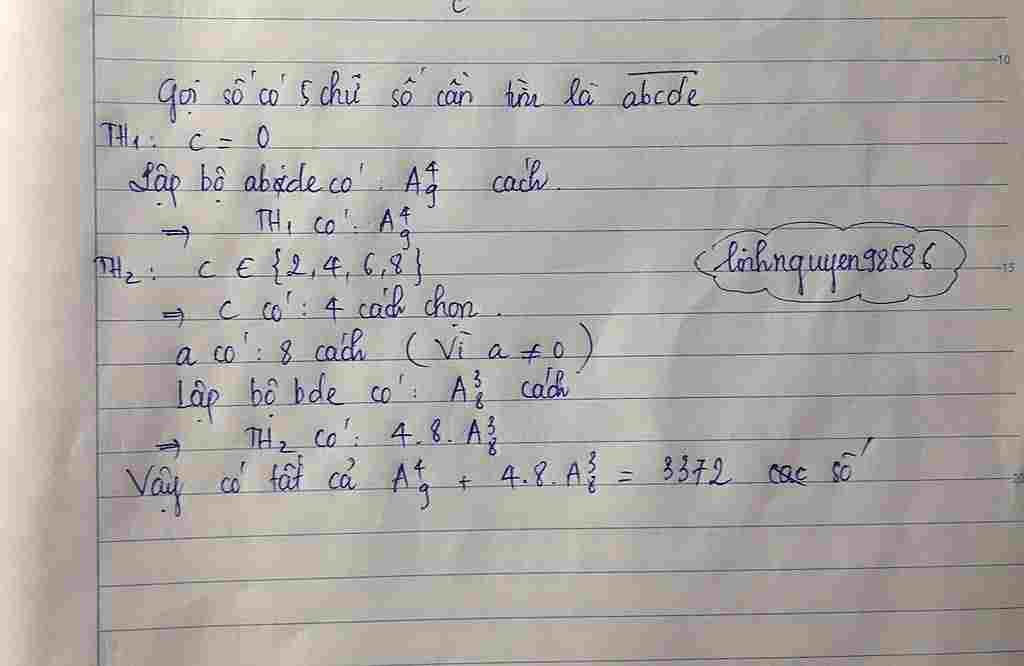 c
10
Gọi số có 5 chữ số cần tìm là abcde
TH1: c = 0
Lập bộ abde có: A⁴₉ cách.
⇒ TH1 có: A⁴₉
TH2: c ∈ {2,4,6,8}
linhnguyen98586
15
⇒ c có: 4 cách chọn.
a có: 8 cách (Vì a ≠ 0)
Lập bộ bde có: A³₈ cách
⇒ TH2 có: 4.8.A³₈
Vậy có tất cả A⁴₉ + 4.8.A³₈ = 3372 các số